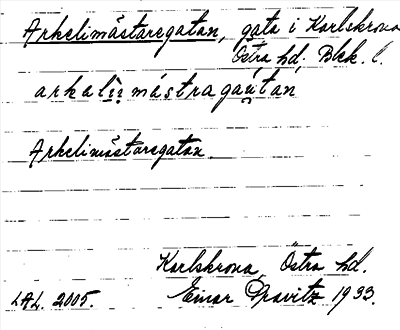 Arkelimästaregatan, gata i Karlskrona
Östra hd. Blek. l.
Arkelimästaregatan
Karlskrona, Östra hd.
LAL. 2005. Einar Gravitz 1933.